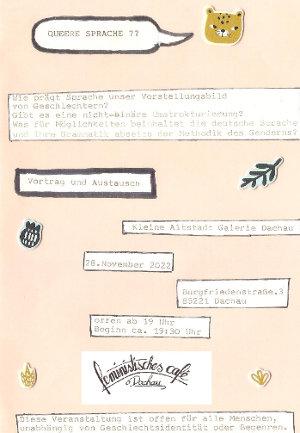 QUEERE SPRACHE ??
Wie prägt Sprache unser Vorstellungsbild
von Geschlechtern?
Gibt es eine nicht-binäre Umstrukturierung?
Was für Möglichkeiten beinhaltet die deutsche Sprache
und ihre Grammatik abseits der Methodik des Genderns?
Vortrag und Austausch
Kleine Altstadt Galerie Dachau
28.November 2022
Burgfriedenstraße.3
85221 Dachau
offen ab 19 Uhr
Beginn ca. 19:30 Uhr
feministisches café
Dachau
Diese Veranstaltung ist offen für alle Menschen,
unabhängig von Geschlechtsidentität oder Begehren.